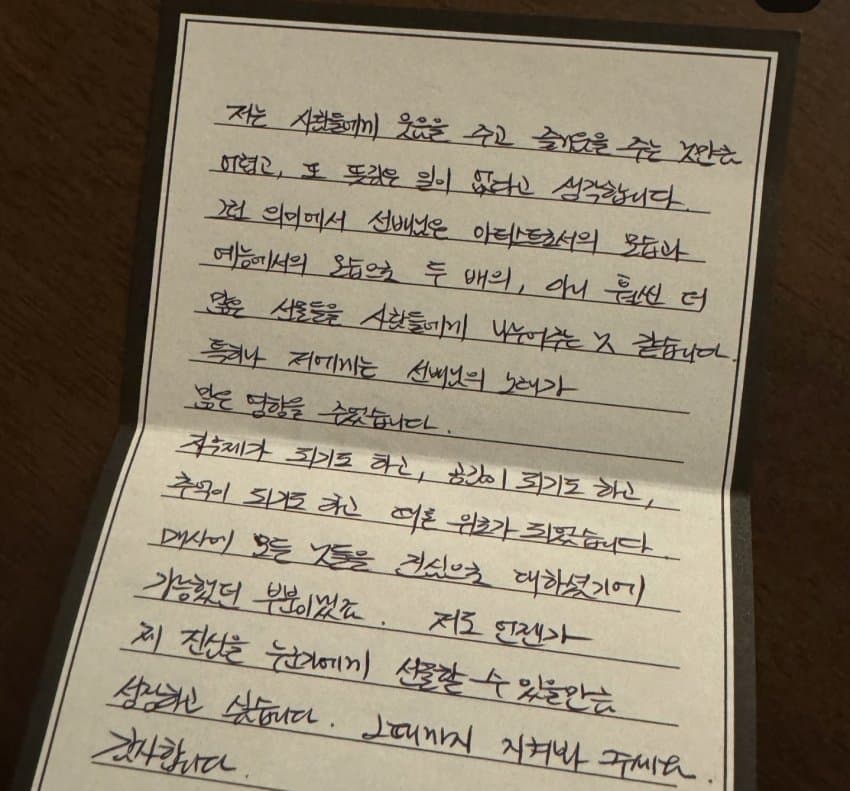 저는 사람들에게 웃음을 주고 즐거움을 주는 것만큼
어렵고, 또 뜻깊은 일이 없다고 생각합니다.
그런 의미에서 선배님은 아티스트로서의 모습과
예능에서의 모습으로 두 배의, 아니 훨씬 더
많은 선물들을 사람들에게 나누어주는 것 같습니다.
특히나 저에게는 선배님의 노래가
많은 영향을 주었습니다.
자극제가 되기도 하고, 공감이 되기도 하고,
추억이 되기도 하고 때론 위로가 되었습니다.
매사에 모든 것들을 진심으로 대하셨기에
가능했던 부분이겠죠. 저도 언젠가
제 진심을 누군가에게 선물할 수 있을만큼
성장하고 싶습니다. 그때까지 지켜봐 주세요.
감사합니다.